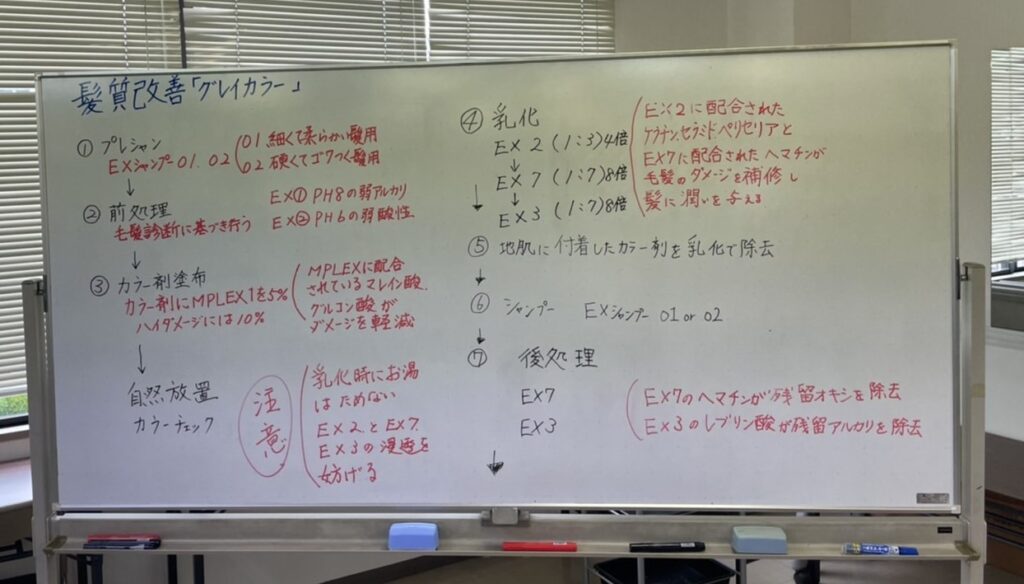 髪質改善「グレイカラー」
① プレシャン
EXシャンプー01.02
01 細くて柔らかい髪用
02 硬くてゴワつく髪用
↓
② 前処理
毛髪診断に基づき行う
EX① PH8の弱アルカリ
EX② PH6の弱酸性
↓
③ カラー剤塗布
カラー剤にMPLEX1を5%
ハイダメージには10%
MPLEXに配合
されているマレイン酸
グルコン酸が
ダメージを軽減
↓
自然放置
カラーチェック
注意
乳化時にお湯
はためない
EX2とEX7
EX3の浸透を
妨げる
④ 乳化
EX2 (1:3)4倍
↓
EX7 (1:7)8倍
↓
EX3 (1:7)8倍
EX2に配合された
ケラチン.セラミド ペリセリアと
EX7に配合されたヘマチンが
毛髪のダメージを補修し
髪に潤いを与える
↓
⑤ 地肌に付着したカラー剤を乳化で除去
↓
⑥ シャンプー EXシャンプー 01 or 02
↓
⑦ 後処理
EX7
EX3
EX7のヘマチンが残留オキシを除去
EX3のレブリン酸が残留アルカリを除去
↓